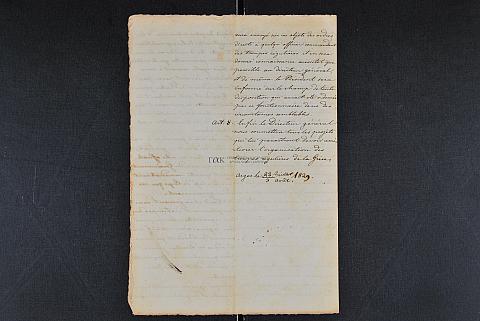 aura envoyé sur ces objets des ordres
directs à quelque officier commandant
des troupes régulières il en sera
donné connaissance aussitôt que
possible au directeur général,
et de même le Président sera
informé sur le champ de toute
disposition qui aurait été ordonnée
par ce fonctionnaire dans des
circonstances semblables.
Art. 8. Enfin le Directeur général
nous soumettra tous les projets
qui lui paraîtront devoir amé-
liorer l'organisation des
troupes régulières de la Grèce,
ΓΑΚ
Argos le 23 Juillet 1829.
5 Août.